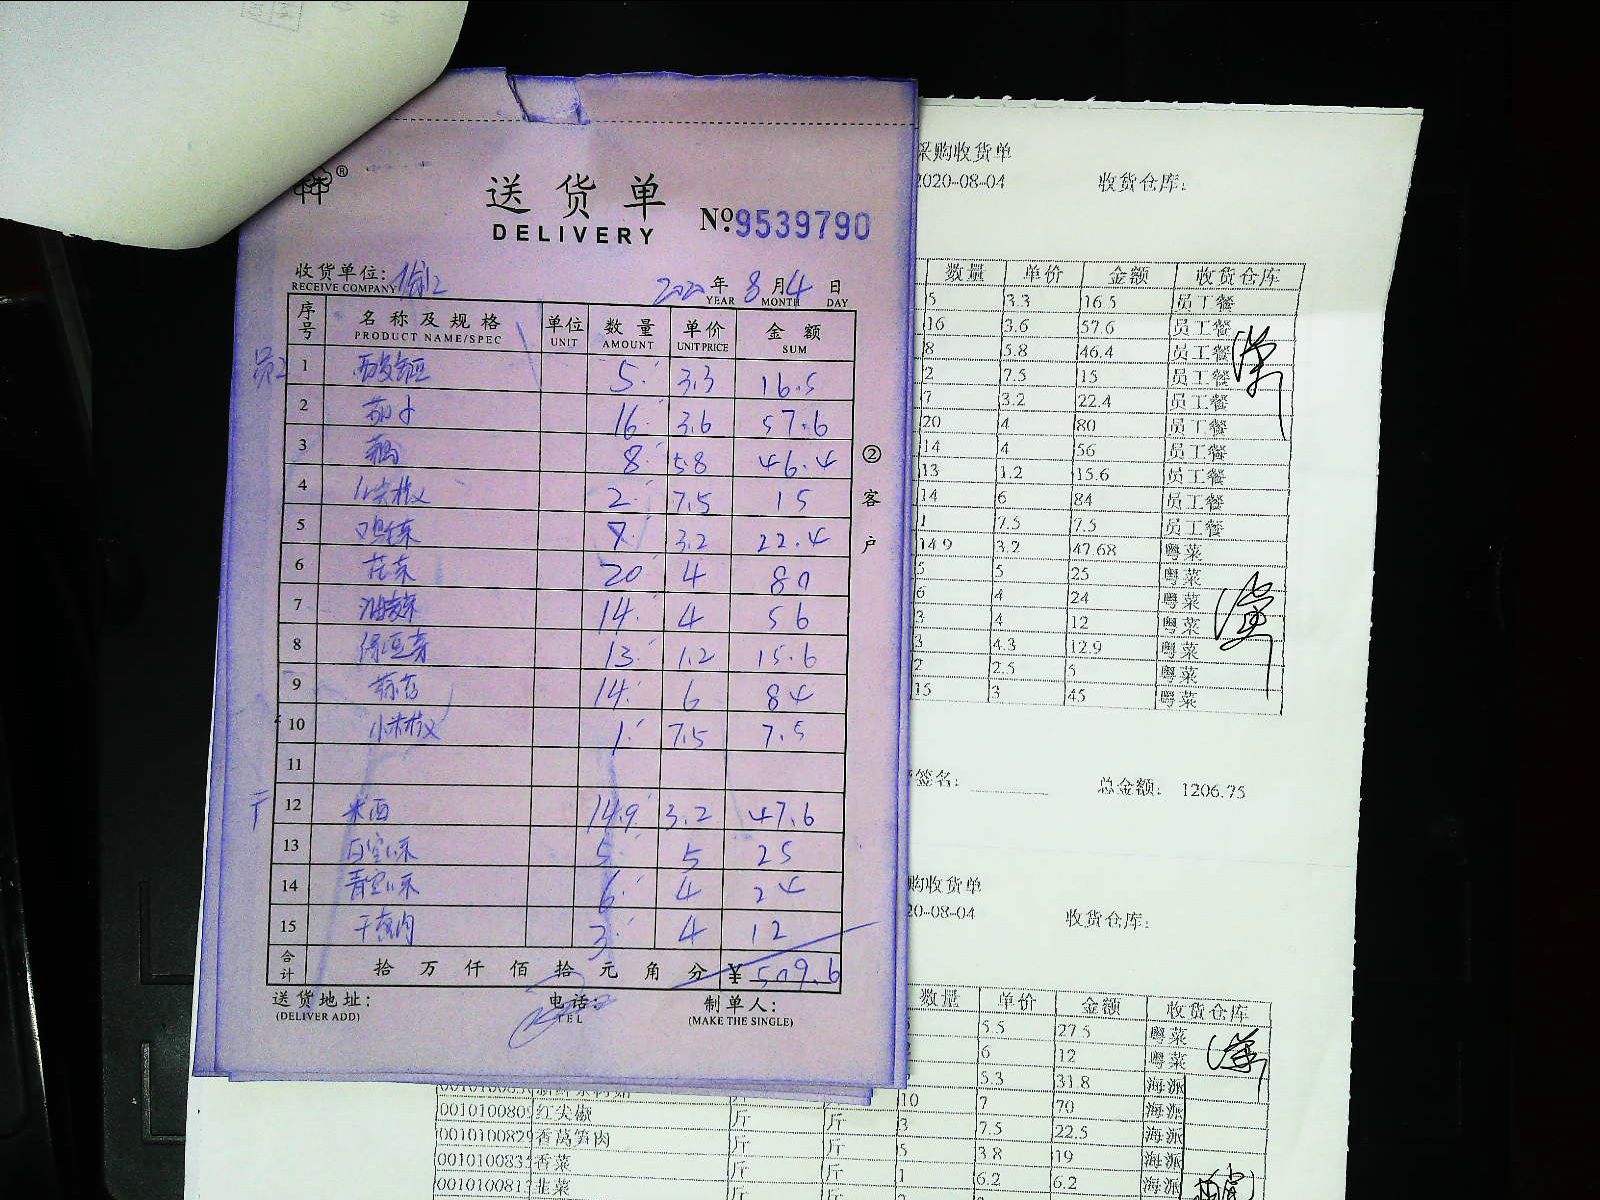 送货单
DELIVERY
№:9539790
收货单位:
RECEIVE COMPANY
2020年8月4日
YEAR MONTH DAY
序号 名称及规格 单位 数量 单价 金额
PRODUCT NAME/SPEC UNIT AMOUNT UNIT PRICE SUM
1 5 3.3 16.5
2 茄子 16 3.6 57.6
3 藕 8 5.8 46.4
4 小米椒 2 7.5 15
5 7 3.2 22.4
6 花菜 20 4 80
7 14 4 56
8 绿豆芽 13 1.2 15.6
9 蒜苔 14 6 84
10 小米椒 1 7.5 7.5
11
12 米西 14.9 3.2 47.6
13 5 5 25
14 6 4 24
15 3 4 12
合计 拾万仟佰拾元角分 ¥ 509.6
送货地址:
(DELIVER ADD)
电话:
TEL
制单人:
(MAKE THE SINGLE)
②客户
采购收货单
2020-08-04 收货仓库:
数量 单价 金额 收货仓库
5 3.3 16.5 员工餐
16 3.6 57.6 员工餐
8 5.8 46.4 员工餐
2 7.5 15 员工餐
7 3.2 22.4 员工餐
20 4 80 员工餐
14 4 56 员工餐
13 1.2 15.6 员工餐
14 6 84 员工餐
1 7.5 7.5 员工餐
14.9 3.2 47.68 粤菜
5 5 25 粤菜
6 4 24 粤菜
3 4 12 粤菜
3 4.3 12.9 粤菜
2 2.5 5 粤菜
15 3 45 粤菜
签名: 总金额: 1206.75
购收货单
20-08-04 收货仓库:
数量 单价 金额 收货仓库
5.5 27.5 粤菜
6 12 粤菜
5.3 31.8 海派
10 7 70 海派
0010100809 红尖椒 斤 斤 3 7.5 22.5 海派
0010100829 香莴笋肉 斤 斤 5 3.8 19 海派
001010083 香菜 斤 斤 1 6.2 6.2 海派
001010081 韭菜 斤 斤